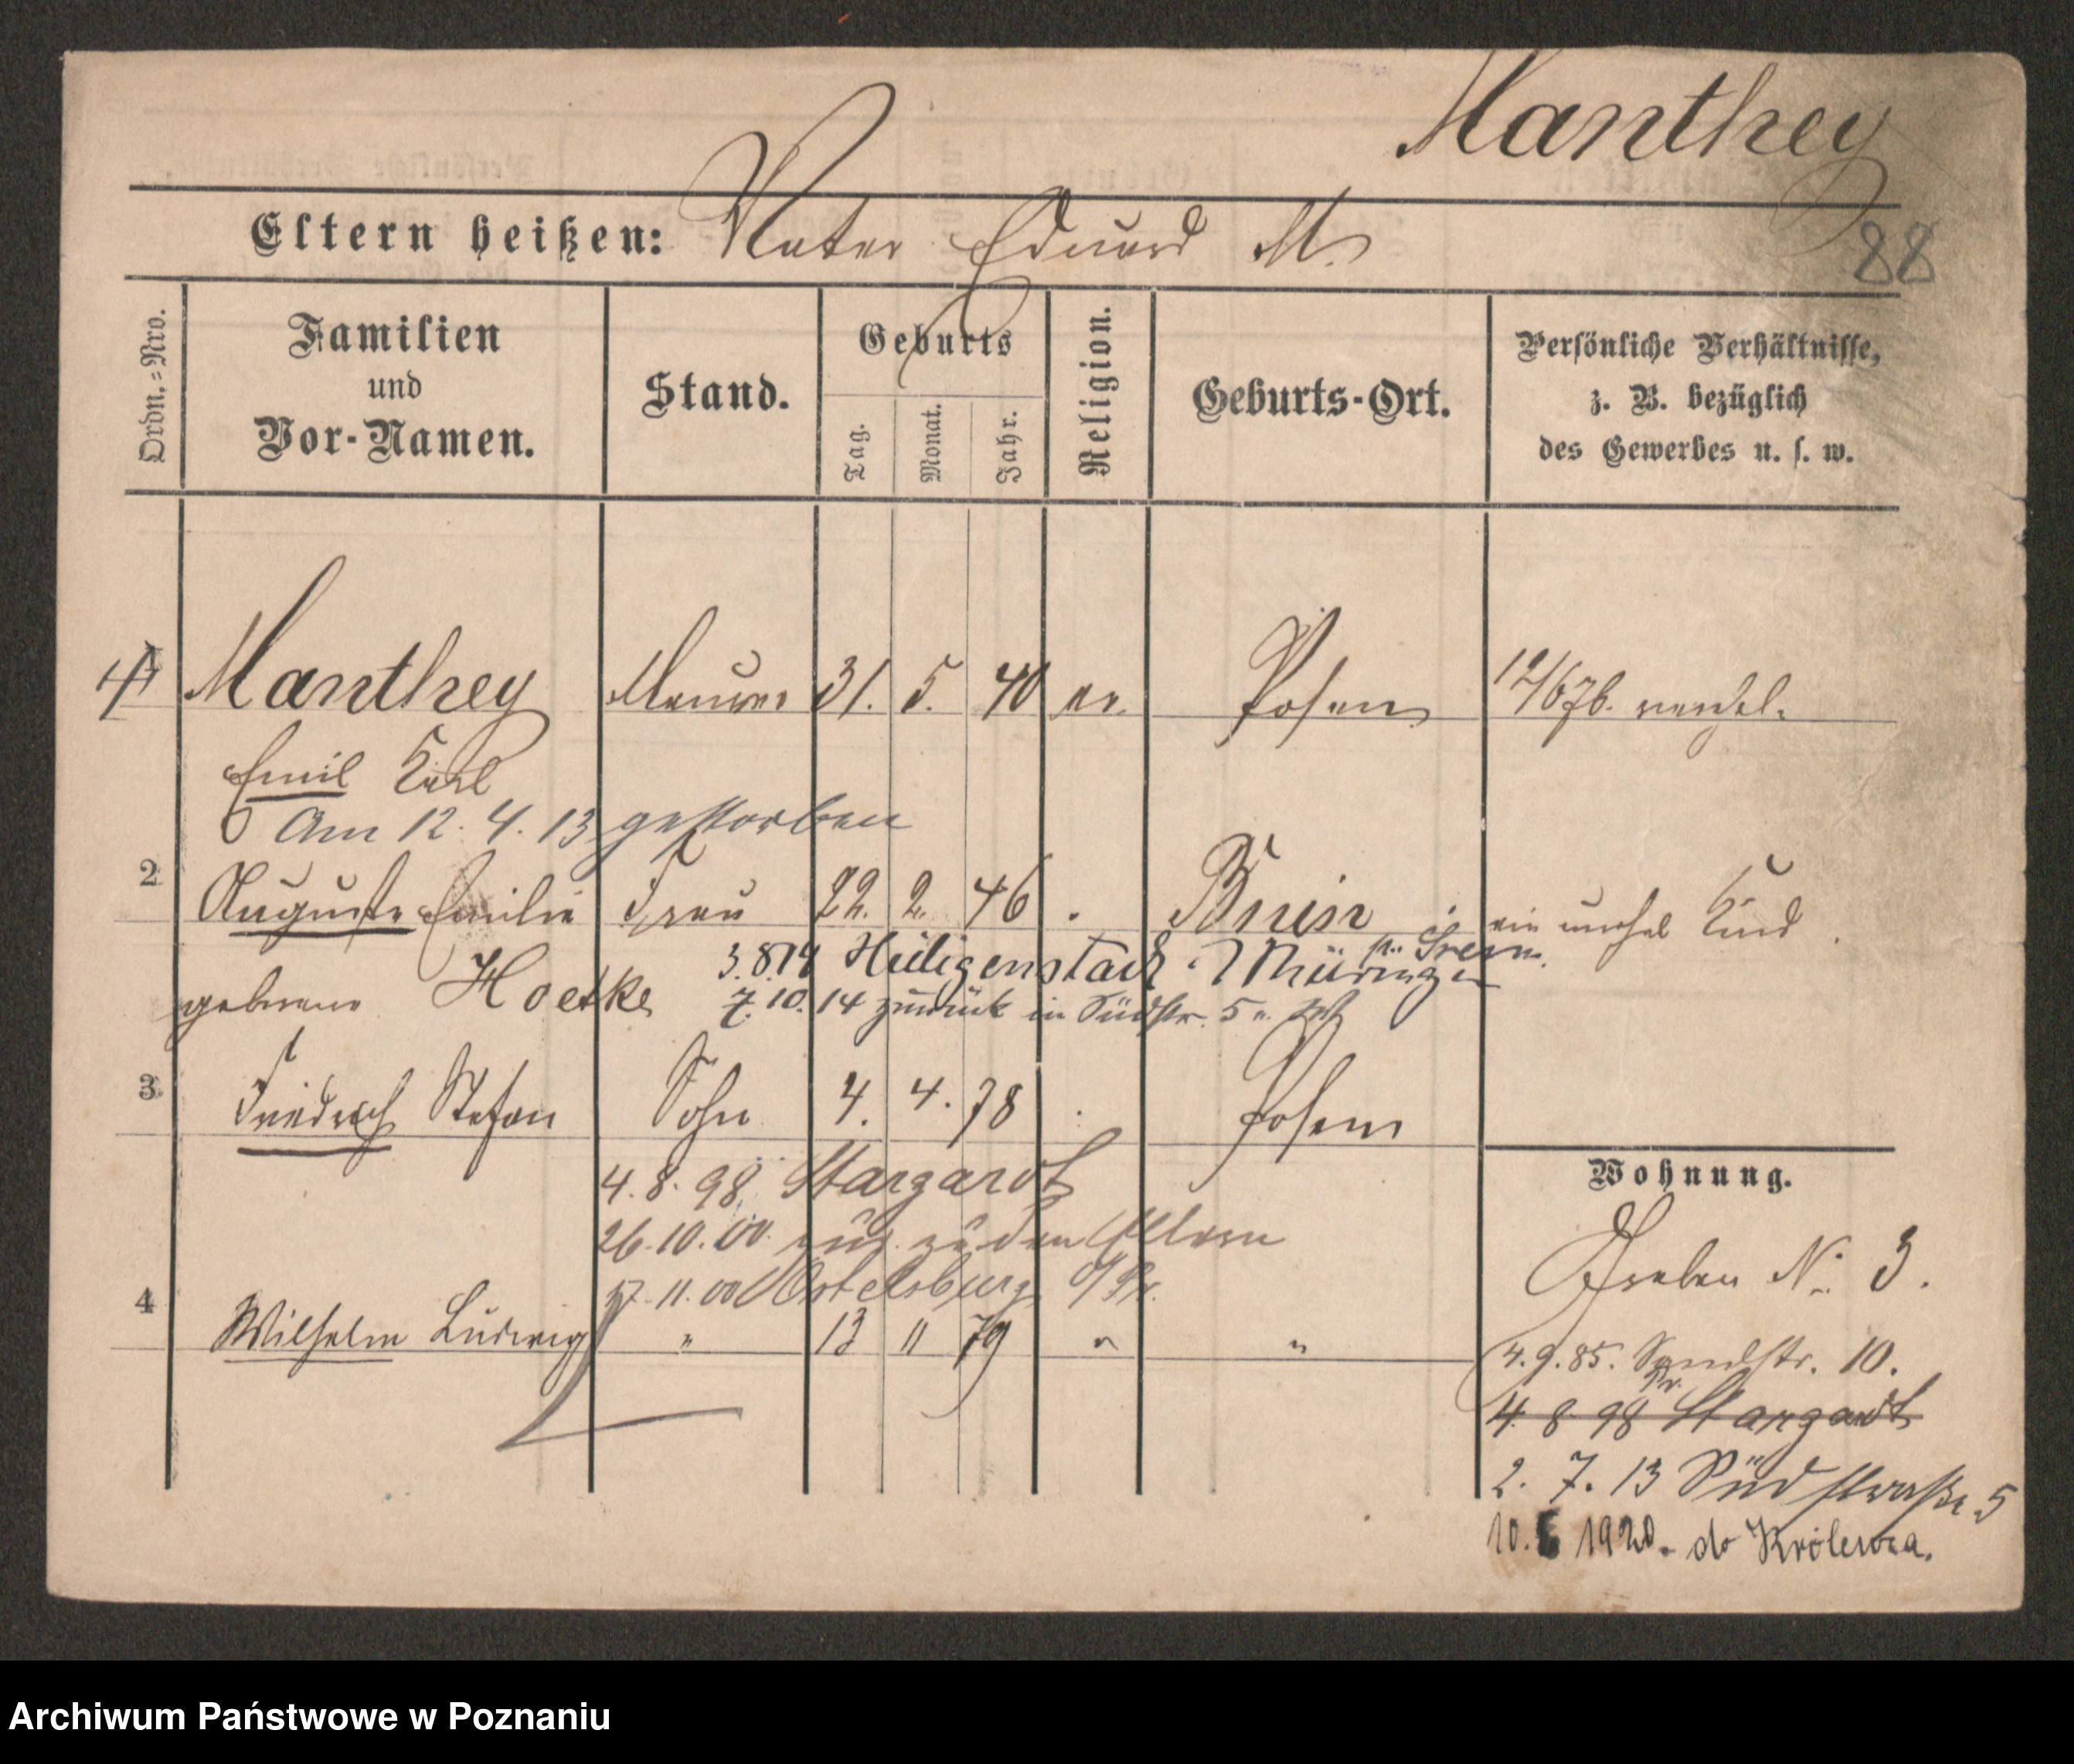 Manthey
Eltern heißen: Vater Eduard M.
88
Ordn.=Nro.
Familien
und
Vor-Namen.
Stand.
Geburts
Tag.
Monat.
Jahr.
Religion.
Geburts-Ort.
Persönliche Verhältnisse,
z. B. bezüglich
des Gewerbes u. s. w.
Manthey Maurer 31. 5. 40 ev. Posen
Emil Karl
Am 12. 4. 13 gestorben
2 Auguste Emilie Frau 22. 2. 46 Bnin ein unehel Kind
Srem
geborene Hoetke 3.8.14 Heiligenstadt Thüringen
7.10.14 zurück in Südstr. 5
3 Friedrich Stefan Sohn 4. 4. 78 Posen
4.8.98 Stargardt
26.10.00 zu den Eltern
17.11.00 Ortelsburg O/Pr.
4 Wilhelm Ludwig " 13 11 79 " "
Wohnung.
Graben No. 3.
4.9.85. Sandstr. 10.
4. 8. 98 Pr. Stargardt
2. 7. 13 Südstraße 5
10. 1920. do Królewca.
Archiwum Państwowe w Poznaniu